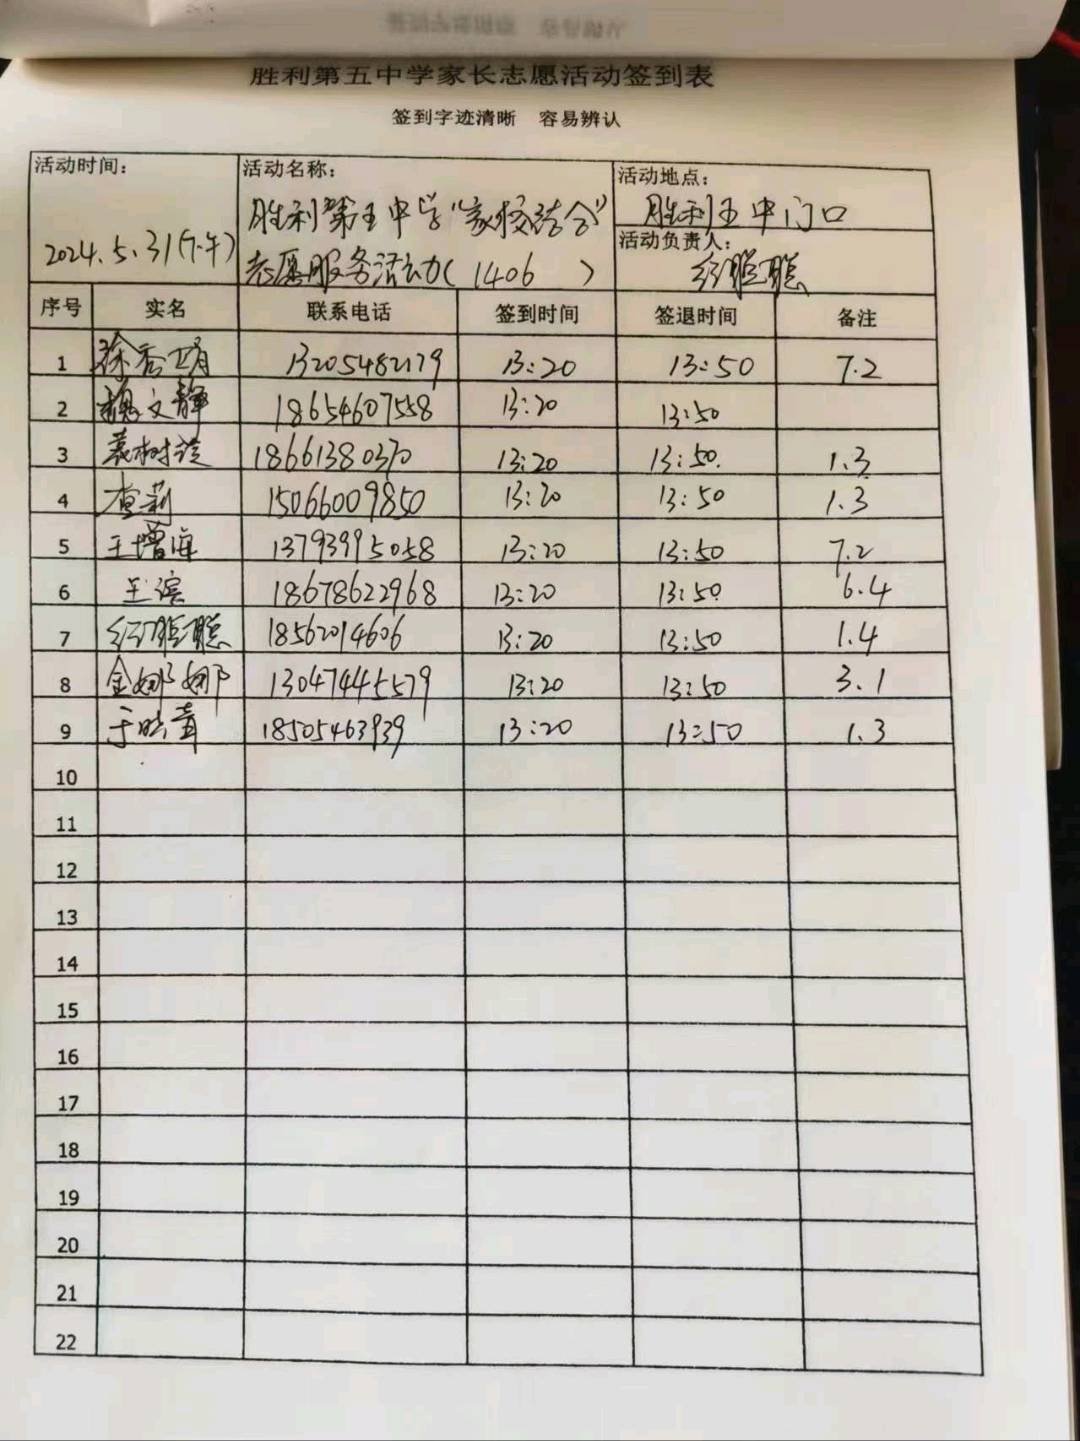 胜利第五中学家长志愿活动签到表
签到字迹清晰 容易辨认
活动时间: 活动名称: 活动地点:
胜利第五中学“家校结合” 胜利五中门口
2024.5.31(下午) 志愿服务活动( 1406 ) 活动负责人:
聪
序号 实名 联系电话 签到时间 签退时间 备注
1 徐秀娟 13205482179 13:20 13:50 7.2
2 魏文静 18654607558 13:20 13:50
3 袁树 18661380370 13:20 13:50. 1.3
4 查莉 15066009850 13:20 13:50 1.3
5 王增海 13793995058 13:20 13:50 7.2
6 王滨 18678622968 13:20 13:50 6.4
7 聪 18562014606 13:20 13:50 1.4
8 金娜娜 13047445579 13:20 13:50 3.1
9 于晓青 18505463939 13:20 13:50 1.3
10
11
12
13
14
15
16
17
18
19
20
21
22